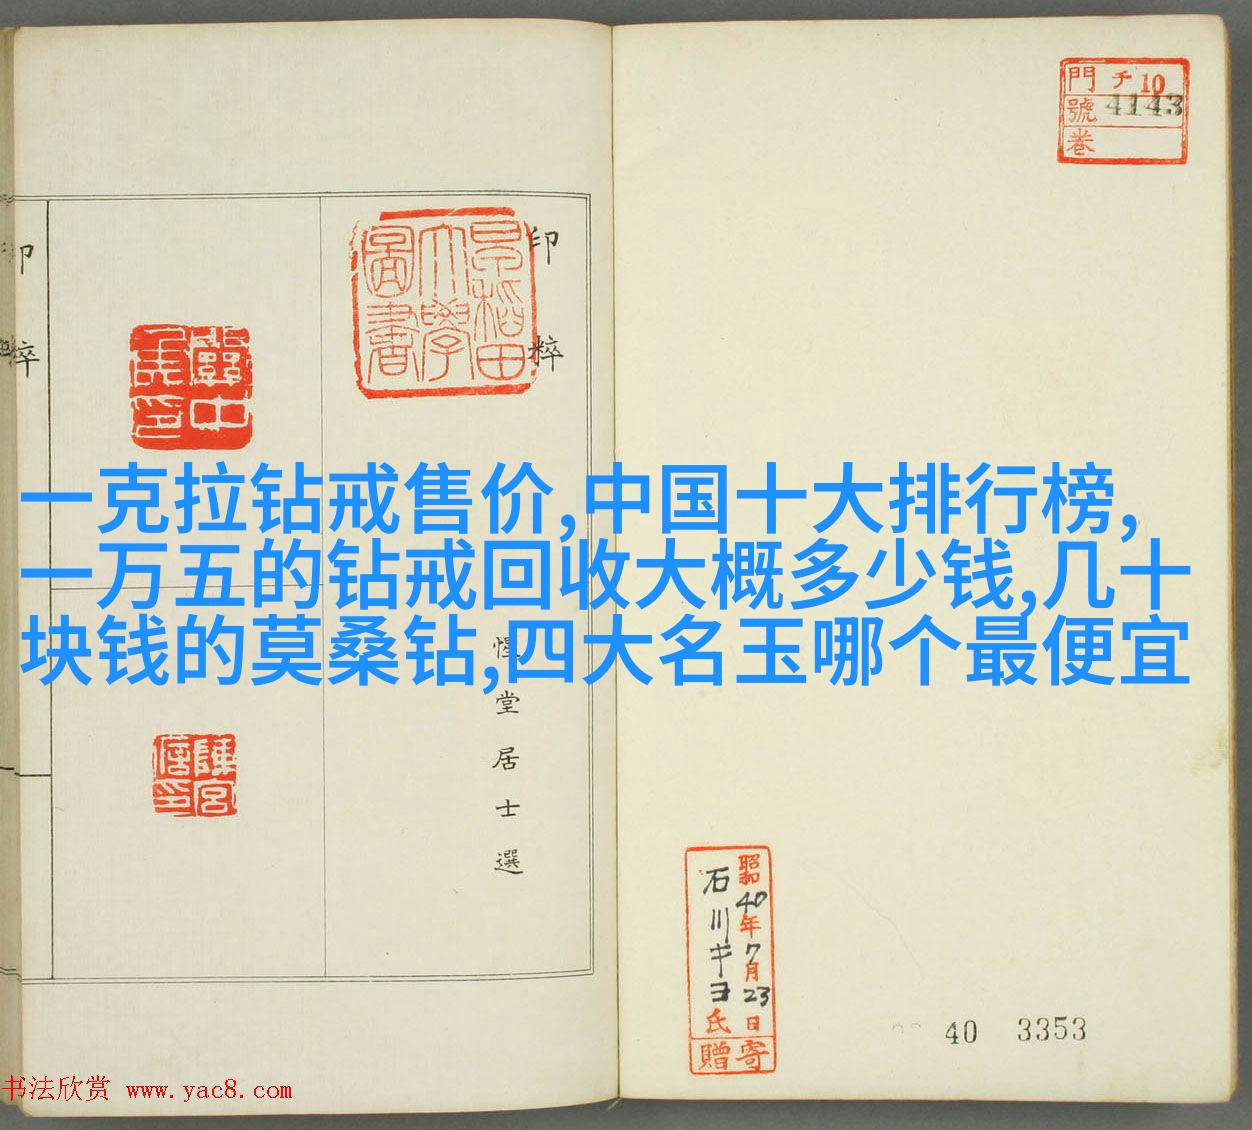 門 チ 10
號 4143
卷
印粹
印粹
早稻田大學圖書
一克拉钻戒售价,中国十大排行榜,
一万五的钻戒回收大概多少钱,几十
块钱的莫桑钻,四大名玉哪个最便宜
惺堂居士選
陳宮信印
昭和40年7月23日
石川キヨ氏
寄贈
40 3353
书法欣赏 www.yac8.com